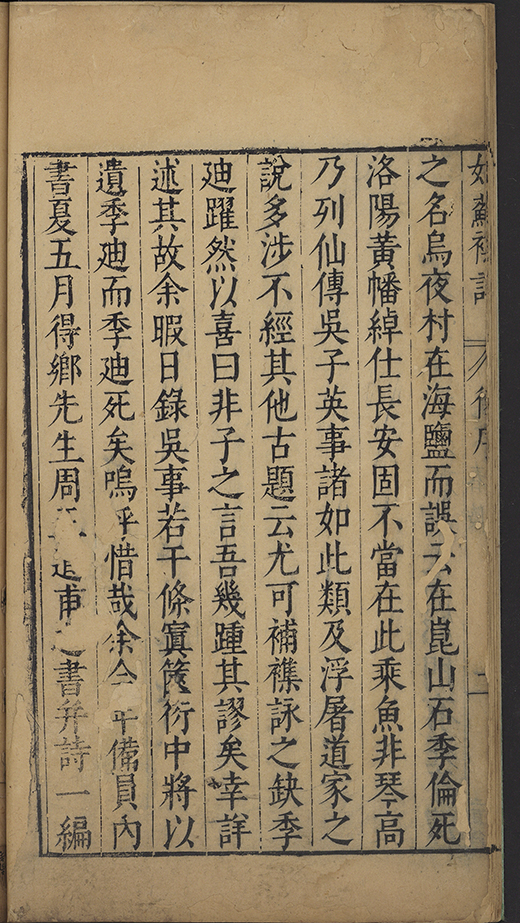 姑蘇雜詠 後序 二
之名烏夜村在海鹽而誤云在崑山石季倫死
洛陽黃幡綽仕長安固不當在此乘魚非琴高
乃列仙傳吳子英事諸如此類及浮屠道家之
說多涉不經其他古題云尤可補襍詠之缺季
廸躍然以喜曰非子之言吾幾踵其謬矣幸詳
述其故余暇日錄吳事若干條寘篋衍中將以
遺季廸而季廸死矣嗚呼惜哉余今年備員內
書夏五月得鄉先生周 甫 書并詩一編